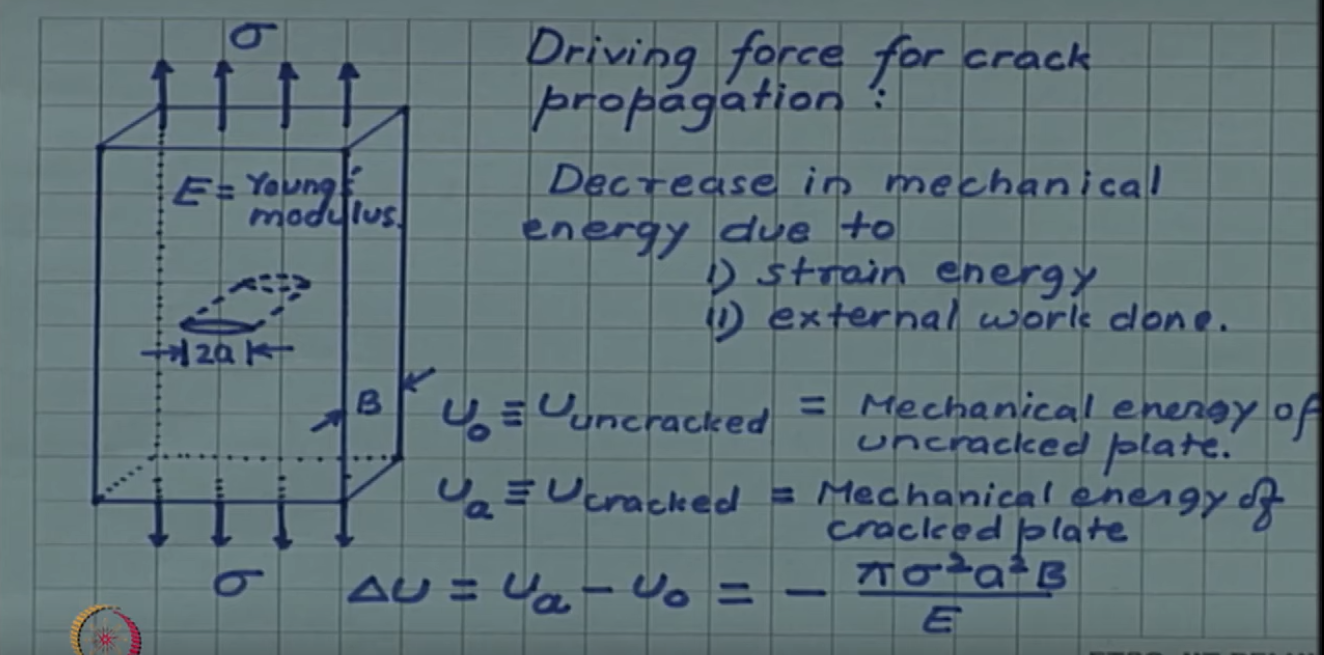 σ
Driving force for crack
propagation :
E = Young's
modulus.
Decrease in mechanical
energy due to
i) strain energy
ii) external work done.
2a
B
U₀ ≡ U uncracked = Mechanical energy of
uncracked plate.
Uₐ ≡ U cracked = Mechanical energy of
cracked plate
σ
ΔU = Uₐ - U₀ = - πσ²a²B / E